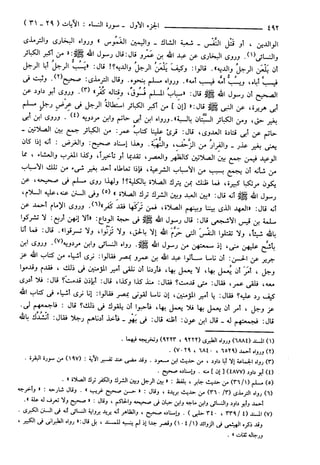 ٤٩٢ الجزء الأول ـ سورة النساء : الآيات (٢٩ ـ ٣١)
الوالدين ، أو قَتْل النَّفْس ـ شعبة الشاك ـ واليمين الغَمُوس » ورواه البخاري والترمذي
والنسائي(١). وروى البخاري عن عبد الله بن عمرو قال: قال رسول الله ﷺ: « من أكبر الكبائر
أن يَلْعَن الرجل والديه ». قالوا: وكيف يَلْعَن الرجل والديه؟! قال: « يَسُبُّ الرجل أبا الرجل
فيسب أباه، ويسُبُّ أمَّه فيسب أمه». ورواه مسلم بنحوه. وقال الترمذي: صحيح(٢). وثبت في
الصحيح أن رسول الله ﷺ قال: «سِبابُ المسلم فُسوقٌ، وقتاله كُفْر»(٣). وروى أبو داود عن
أبي هريرة، عن النبي ﷺ قال: «[إن] من أكبر الكبائر استطالةُ الرجل في عِرْض رجل مسلم
بغير حق، ومن الكبائر السَّبَّتان بالسبة». ورواه ابن أبي حاتم وابن مردويه(٤). وروى ابن أبي
حاتم عن أبي قتادة العدوي، قال: قرئ علينا كتاب عمر: من الكبائر جمع بين الصلاتين ـ
يعني بغير عذر ـ والفرار من الزحف، والنُّهبة. وهذا إسناد صحيح: والغرض: أنه إذا كان
الوعيد فيمن جمع بين الصلاتين كالظهر والعصر، تقديمًا أو تأخيرًا، وكذا المغرب والعشاء، مما
من شأنه أن يجمع بسبب من الأسباب الشرعية، فإذا تعاطاه أحد بغير شيء من تلك الأسباب
يكون مرتكبًا كبيرة، فما ظنك بمن يترك الصلاة بالكلية؟! ولهذا روى مسلم في صحيحه، عن
رسول الله ﷺ أنه قال: «بين العبد وبين الشرك ترك الصلاة»(٥) وفي السنن عنه، عليه السلام،
أنه قال: «العهد الذي بيننا وبينهم الصلاة، فمن تركها فقد كفر»(٦). وروى الإمام أحمد عن
سلمة بن قيس الأشجعي قال: قال رسول الله ﷺ في حجة الوداع: «ألا إنهن أربع: لا تشركوا
بالله شيئًا، ولا تقتلوا النفس التي حرم الله إلا بالحق، ولا تزنوا، ولا تسرقوا». قال: فما أنا
بأشح عليهن مني، إذ سمعتهن من رسول الله ﷺ. رواه النسائي وابن مردويه(٧). وروى ابن
جرير عن الحسن: أن ناسا سألوا عبد الله بن عمرو بمصر فقالوا: نرى أشياء من كتاب الله عز
وجل، أمر أن يعمل بها، لا يعمل بها، فأردنا أن نلقى أمير المؤمنين في ذلك، فقدم وقدموا
معه، فلقي عمر، فقال: متى قدمت؟ فقال: منذ كذا وكذا، قال: أبإذن قدمت؟ قال: فلا أدري
كيف رد عليه؟ فقال: يا أمير المؤمنين، إن ناسا لقوني بمصر فقالوا: إنا نرى أشياء في كتاب الله
عز وجل، أمر أن يعمل بها فلا يعمل بها، فأحبوا أن يلقوك في ذلك؟ قال: فاجمعهم لي.
قال: فجمعتهم له ـ قال ابن عون: أظنه قال: في بَهْو ـ فأخذ أدناهم رجلا فقال: أنشُدُك بالله
(١) المسند (٦٨٨٤) ورواه الطبري (٩٢٢٢، ٩٢٢٣) وتخريجه فيهما .
(٢) رواه أحمد (٦٥٢٩ ، ٦٨٤٠ ، ٧٠٢٩) .
(٣) رواه الجماعة إلا أبا داود ، من حديث ابن مسعود . وقد مضى عند تفسير الآية : (١٩٧) من سورة البقرة .
(٤) أبو داود (٤٨٧٧) [إن] منه . وإسناده صحيح .
(٥) مسلم (١/ ٣٦) من حديث جابر ، بلفظ : « بين الرجل وبين الشرك والكفر ترك الصلاة » .
(٦) رواه الترمذي (٣/ ٣٦٠) من حديث بريدة ، وقال : « حسن صحيح غريب » . وقال شارحه : « وأخرجه
أحمد وأبو داود والنسائي وابن ماجه وابن حبان في صحيحه والحاكم ، وقال : « صحيح ولا تعرف له علة » .
(٧) المسند (٤/ ٣٣٩ ، ٣٤٠ حلبي) . وإسناده صحيح ، والظاهر أنه يريد برواية النسائي أنه في السنن الكبرى .
وقد ذكره الهيثمي في الزوائد (١/ ١٠٤) وقصر جدا إذ لم ينسبه للمسند ، بل قال : « رواه الطبراني في الكبير ،
ورجاله ثقات » .